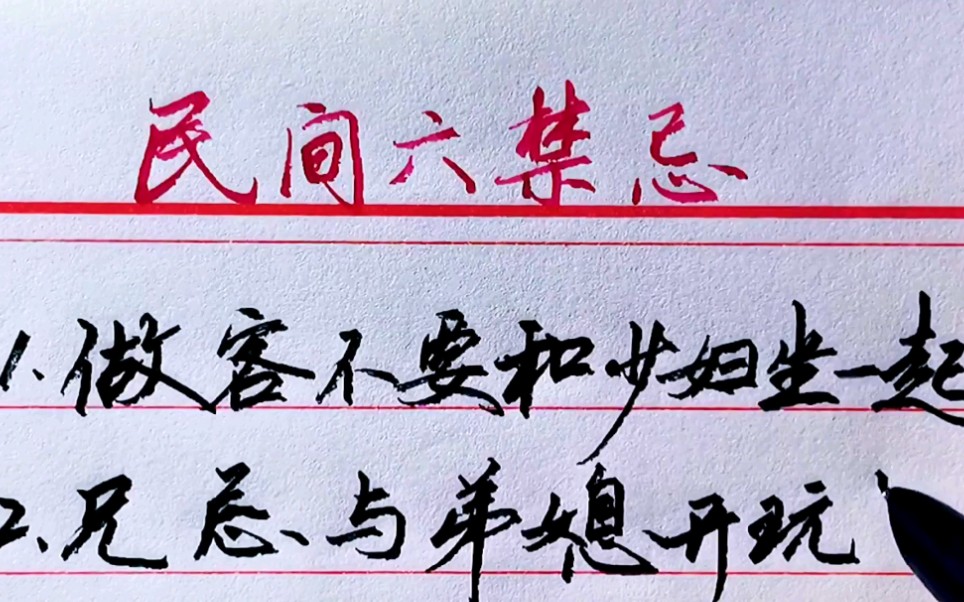 民间六禁忌
1.做客不要和少妇坐一起
2、兄忌与弟媳开玩